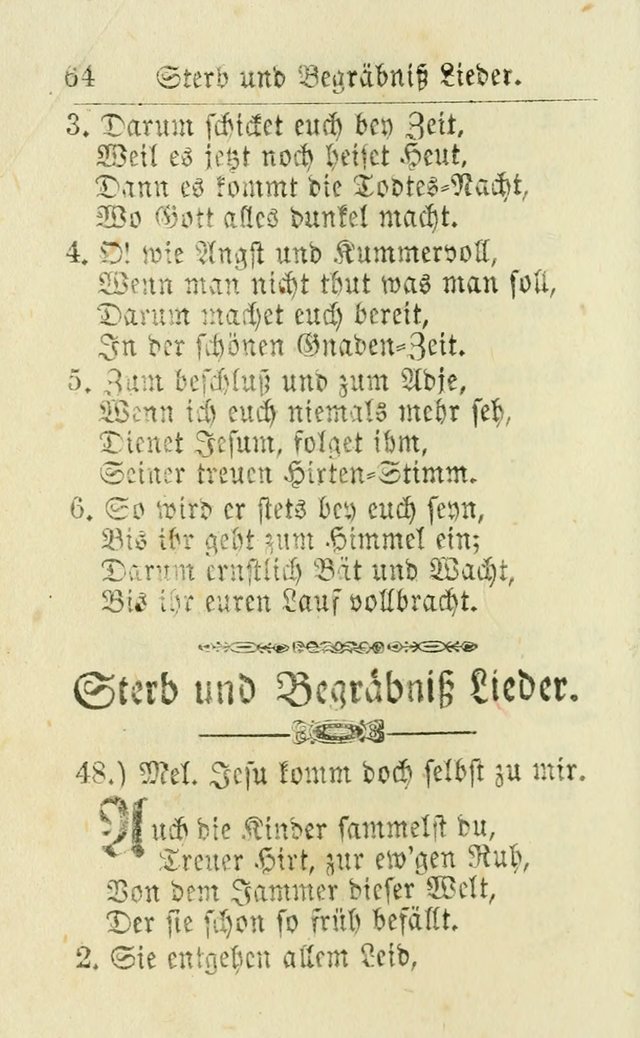 64 Sterb und Begräbniß Lieder.
3. Darum schicket euch bey Zeit,
Weil es jetzt noch heiset Heut,
Dann es kommt die Todtes-Nacht,
Wo Gott alles dunkel macht.
4. O! wie Angst und Kummervoll,
Wenn man nicht thut was man soll,
Darum machet euch bereit,
In der schönen Gnaden-Zeit.
5. Zum beschluß und zum Adje,
Wenn ich euch niemals mehr seh,
Dienet Jesum, folget ihm,
Seiner treuen Hirten-Stimm.
6. So wird er stets bey euch seyn,
Bis ihr geht zum Himmel ein;
Darum ernstlich Bät und Wacht,
Bis ihr euren Lauf vollbracht.
Sterb und Begräbniß Lieder.
48.) Mel. Jesu komm doch selbst zu mir.
Auch die Kinder sammelst du,
Treuer Hirt, zur ew'gen Ruh,
Von dem Jammer dieser Welt,
Der sie schon so früh befällt.
2. Sie entgehen allem Leid,